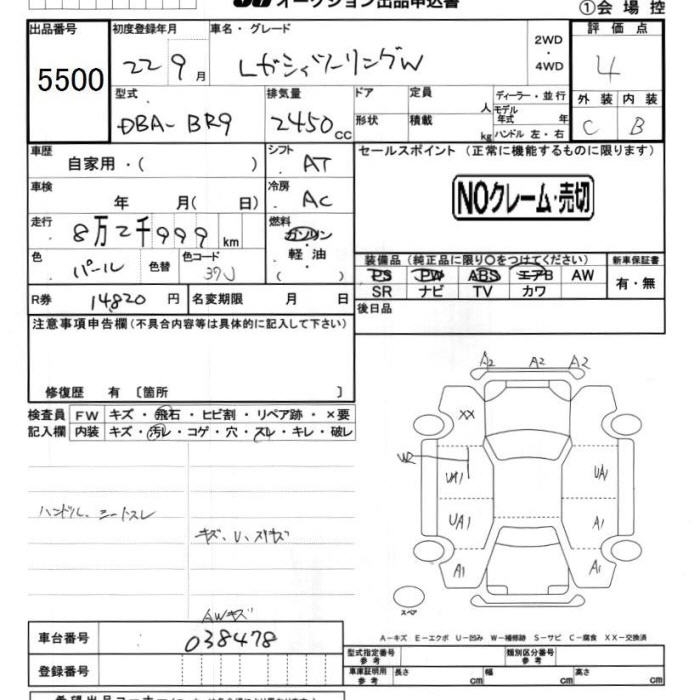 オークション出品申込書
①会場控
出品番号 初度登録年月 車名・グレード 2WD・4WD 評価点
5500 22 9月 Lガシィツーリングw 4
型式 排気量 ドア 定員 人 ディーラー・並行 外装 内装
DBA-BR9 2450cc 形状 積載 kg モデル年式 年 ハンドル 左・右 C B
車歴 自家用・( ) シフト AT セールスポイント (正常に機能するものに限ります)
車検 年 月( 日) 冷房 AC NOクレーム・売切
走行 8万2千999km 燃料 ガソリン・軽油 ( )
色 パール 色替 色コード 37J 装備品 (純正品に限り〇をつけてください) 新車保証書
PS PW ABS エアB AW 有・無
SR ナビ TV カワ
R券 14820円 名変期限 月 日 後日品
注意事項申告欄(不具合内容等は具体的に記入して下さい)
修復歴 有 〔箇所 〕
A2 A2 A2
検査員 FW キズ・飛石・ヒビ割・リペア跡・×要
記入欄 内装 キズ・汚レ・コゲ・穴・スレ・キレ・破レ
XX
W2 UA1 UA1
ハンドル、シートスレ UA1 A1
キズ、U、スリキズ
A1 A1
スペア
AWキズ
車台番号 038478
A-キズ E-エクボ U-凹み W-補修跡 S-サビ C-腐食 XX-交換済
登録番号 型式指定番号 参考 類別区分番号 参考
車庫証明用 参考 長さ cm 幅 cm 高さ cm